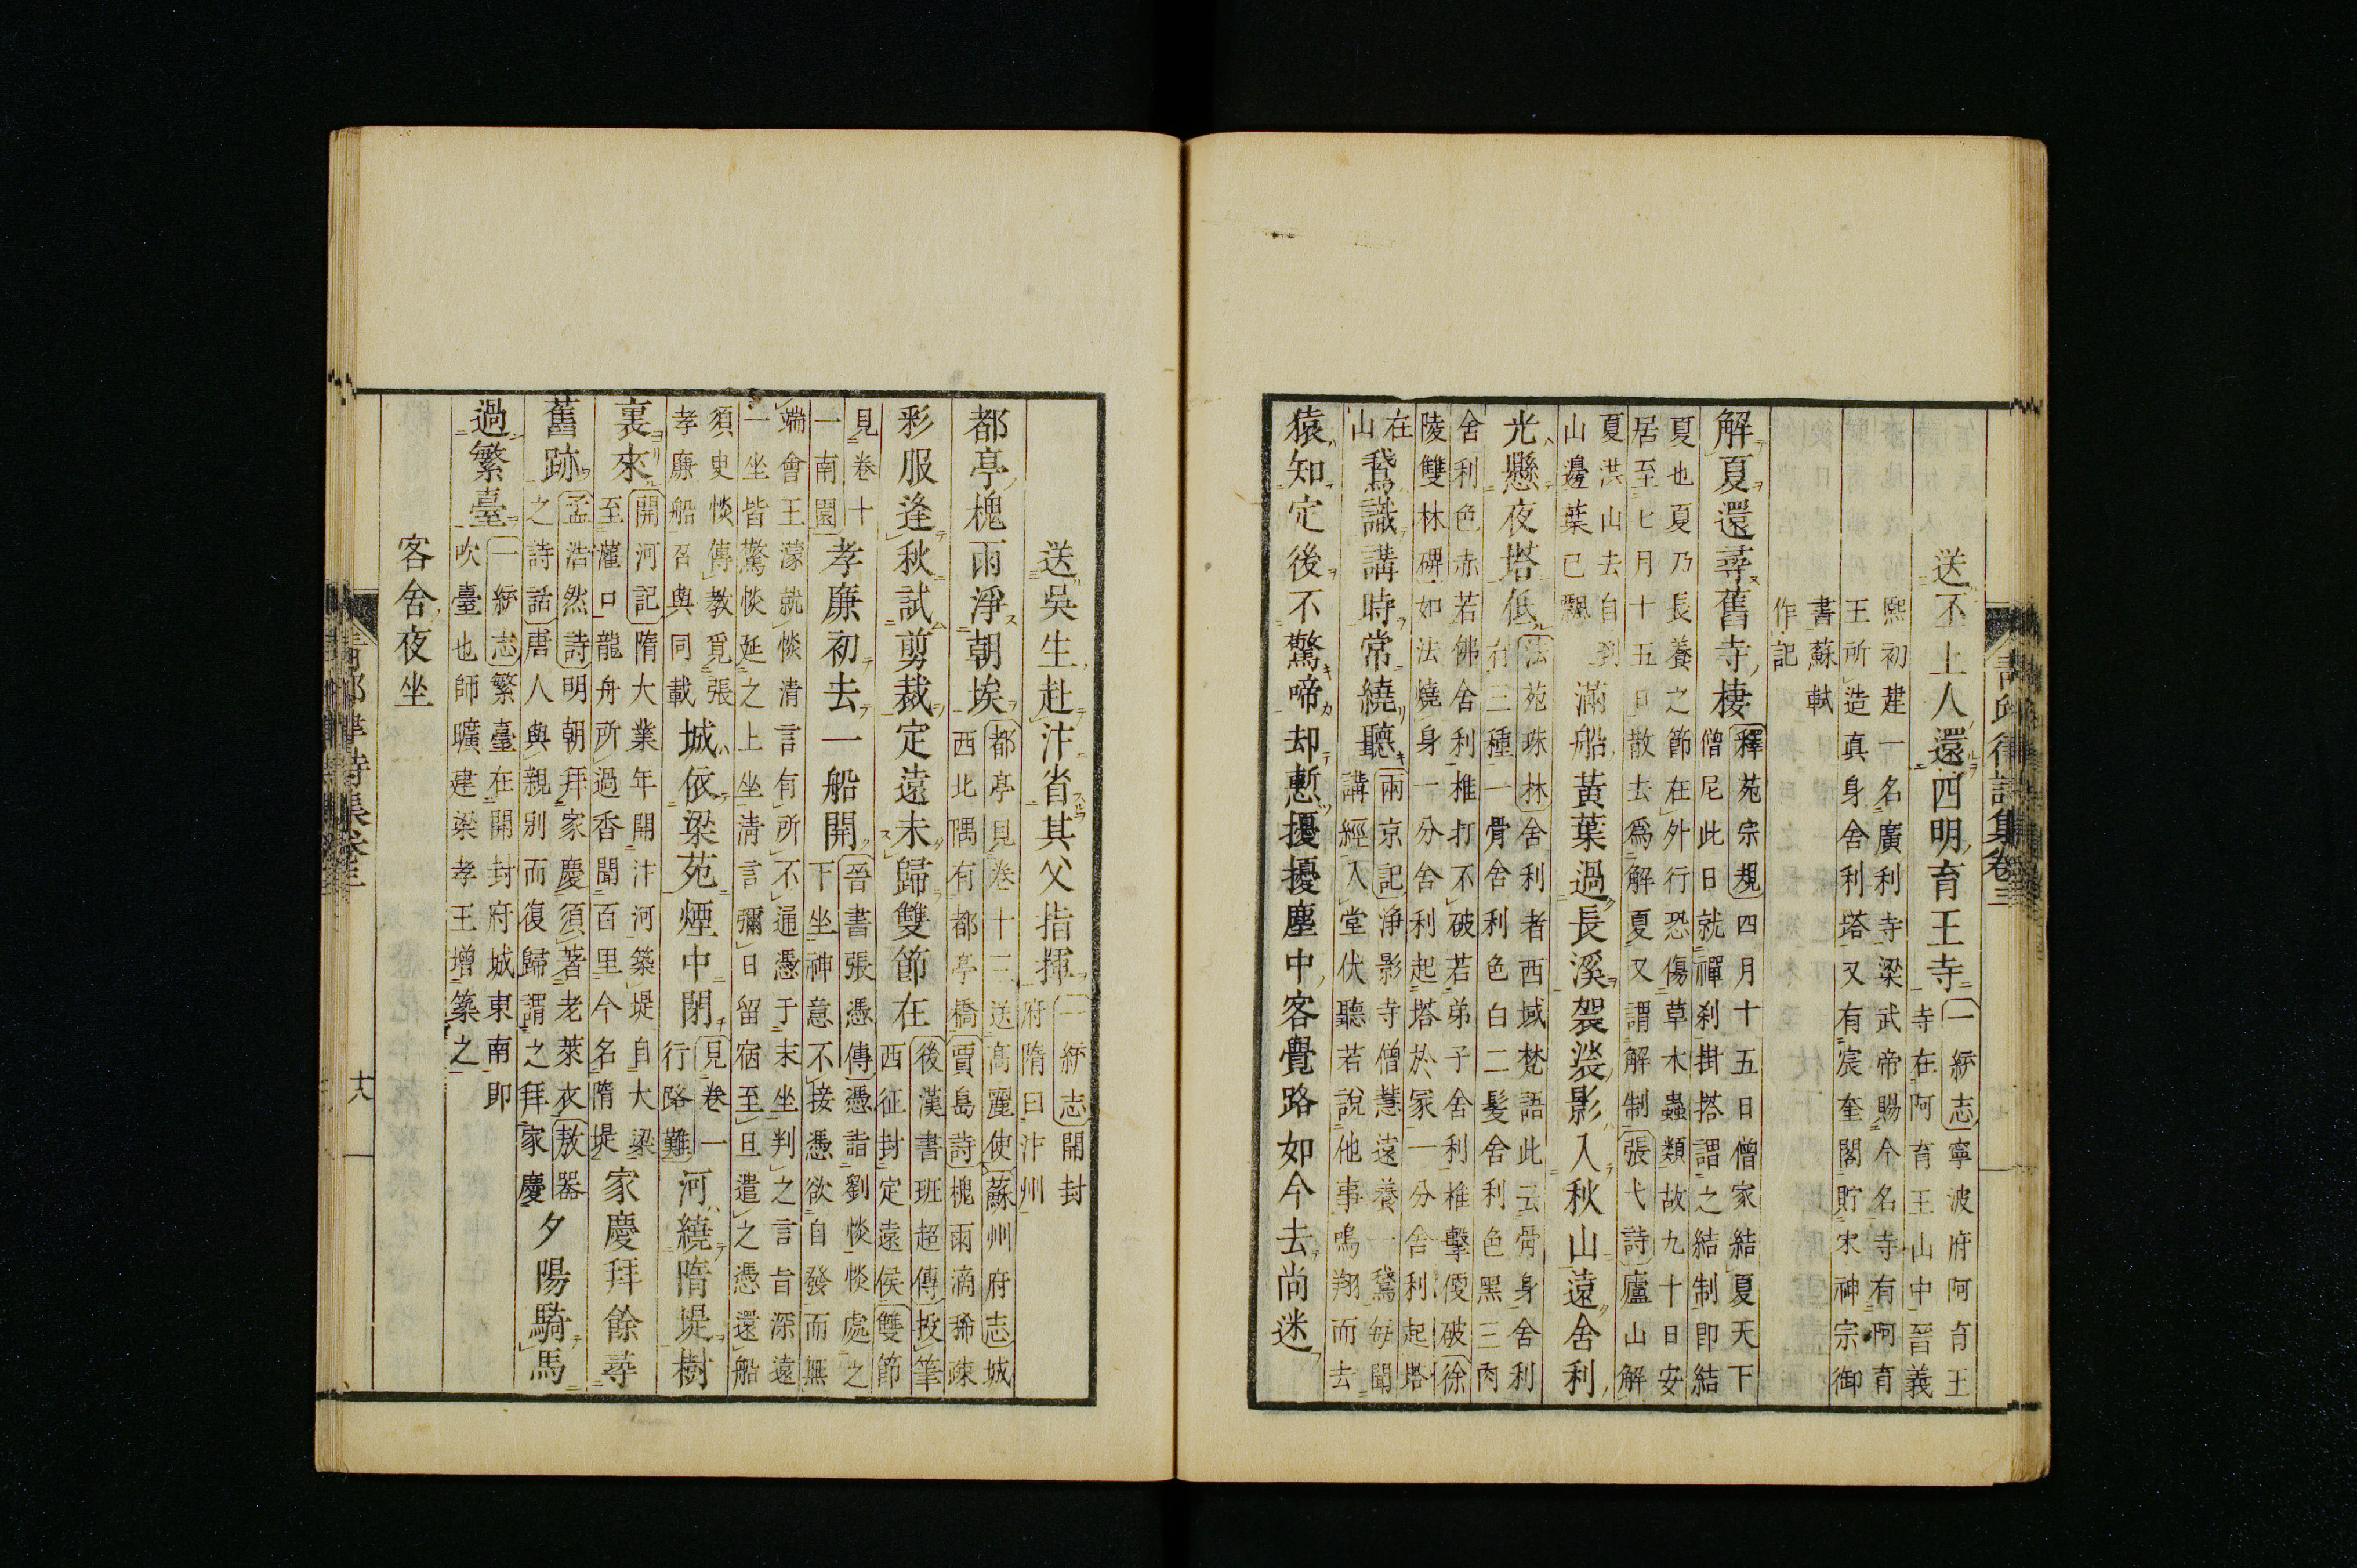 青邱律詩集卷三
送不上人還四明育王寺
一統志寧波府阿育王
寺在阿育王山中晉義
熙初建一名廣利寺梁武帝賜今名寺有阿育
王所造真身舍利塔又有宸奎閣貯宋神宗御
書蘇軾
作記
解夏還尋舊寺棲
釋苑宗規四月十五日僧家結夏天下
僧尼此日就禪刹掛搭謂之結制即結
夏也夏乃長養之節在外行恐傷草木蟲類故九十日安
居至七月十五日散去爲解夏又謂解制張弋詩廬山解
夏洪山去自到
山邊葉已飄
滿船黃葉過長溪袈裟影入秋山遠舍利
光懸夜塔低
法苑珠林舍利者西域梵語此云骨身舍利
有三種一骨舍利色白二髮舍利色黑三肉
舍利色赤若佛舍利椎打不破若弟子舍利椎擊便破徐
陵雙林碑如法燒身一分舍利起塔於冢一分舍利起塔
在
山
鵞識講時常繞聽
兩京記淨影寺僧慧遠養一鵞每聞
講經入堂伏聽若說他事鳴翔而去
猿知定後不驚啼却慙擾擾塵中客覺路如今去尚迷
送吳生赴汴省其父指揮
一統志開封
府隋曰汴州
都亭槐雨淨朝埃
都亭見卷十二送高麗使蘇州府志城
西北隅有都亭橋賈島詩槐雨滴稀疎
彩服逢秋試剪裁定遠未歸雙節在
後漢書班超傳投筆
西征封定遠侯雙節
見卷十
一南園
孝廉初去一船開
晉書張憑傳憑詣劉惔惔處之
下坐神意不接憑欲自發而無
端會王濛就惔清言有所不通憑于末坐判之言旨深遠
一坐皆驚惔延之上坐清言彌日留宿至旦遣之憑還船
須臾惔傳教覓張
孝廉船召與同載
城依梁苑煙中閉
見卷一
行路難
河繞隋堤樹
裏來
開河記隋大業年開汴河築堤自大梁
至灌口龍舟所過香聞百里今名隋堤
家慶拜餘尋
舊跡
孟浩然詩明朝拜家慶須著老萊衣敖器
之詩話唐人與親別而復歸謂之拜家慶
夕陽騎馬
過繁臺
一統志繁臺在開封府城東南即
吹臺也師曠建梁孝王增築之
客舍夜坐
青邱律詩集卷三
十八